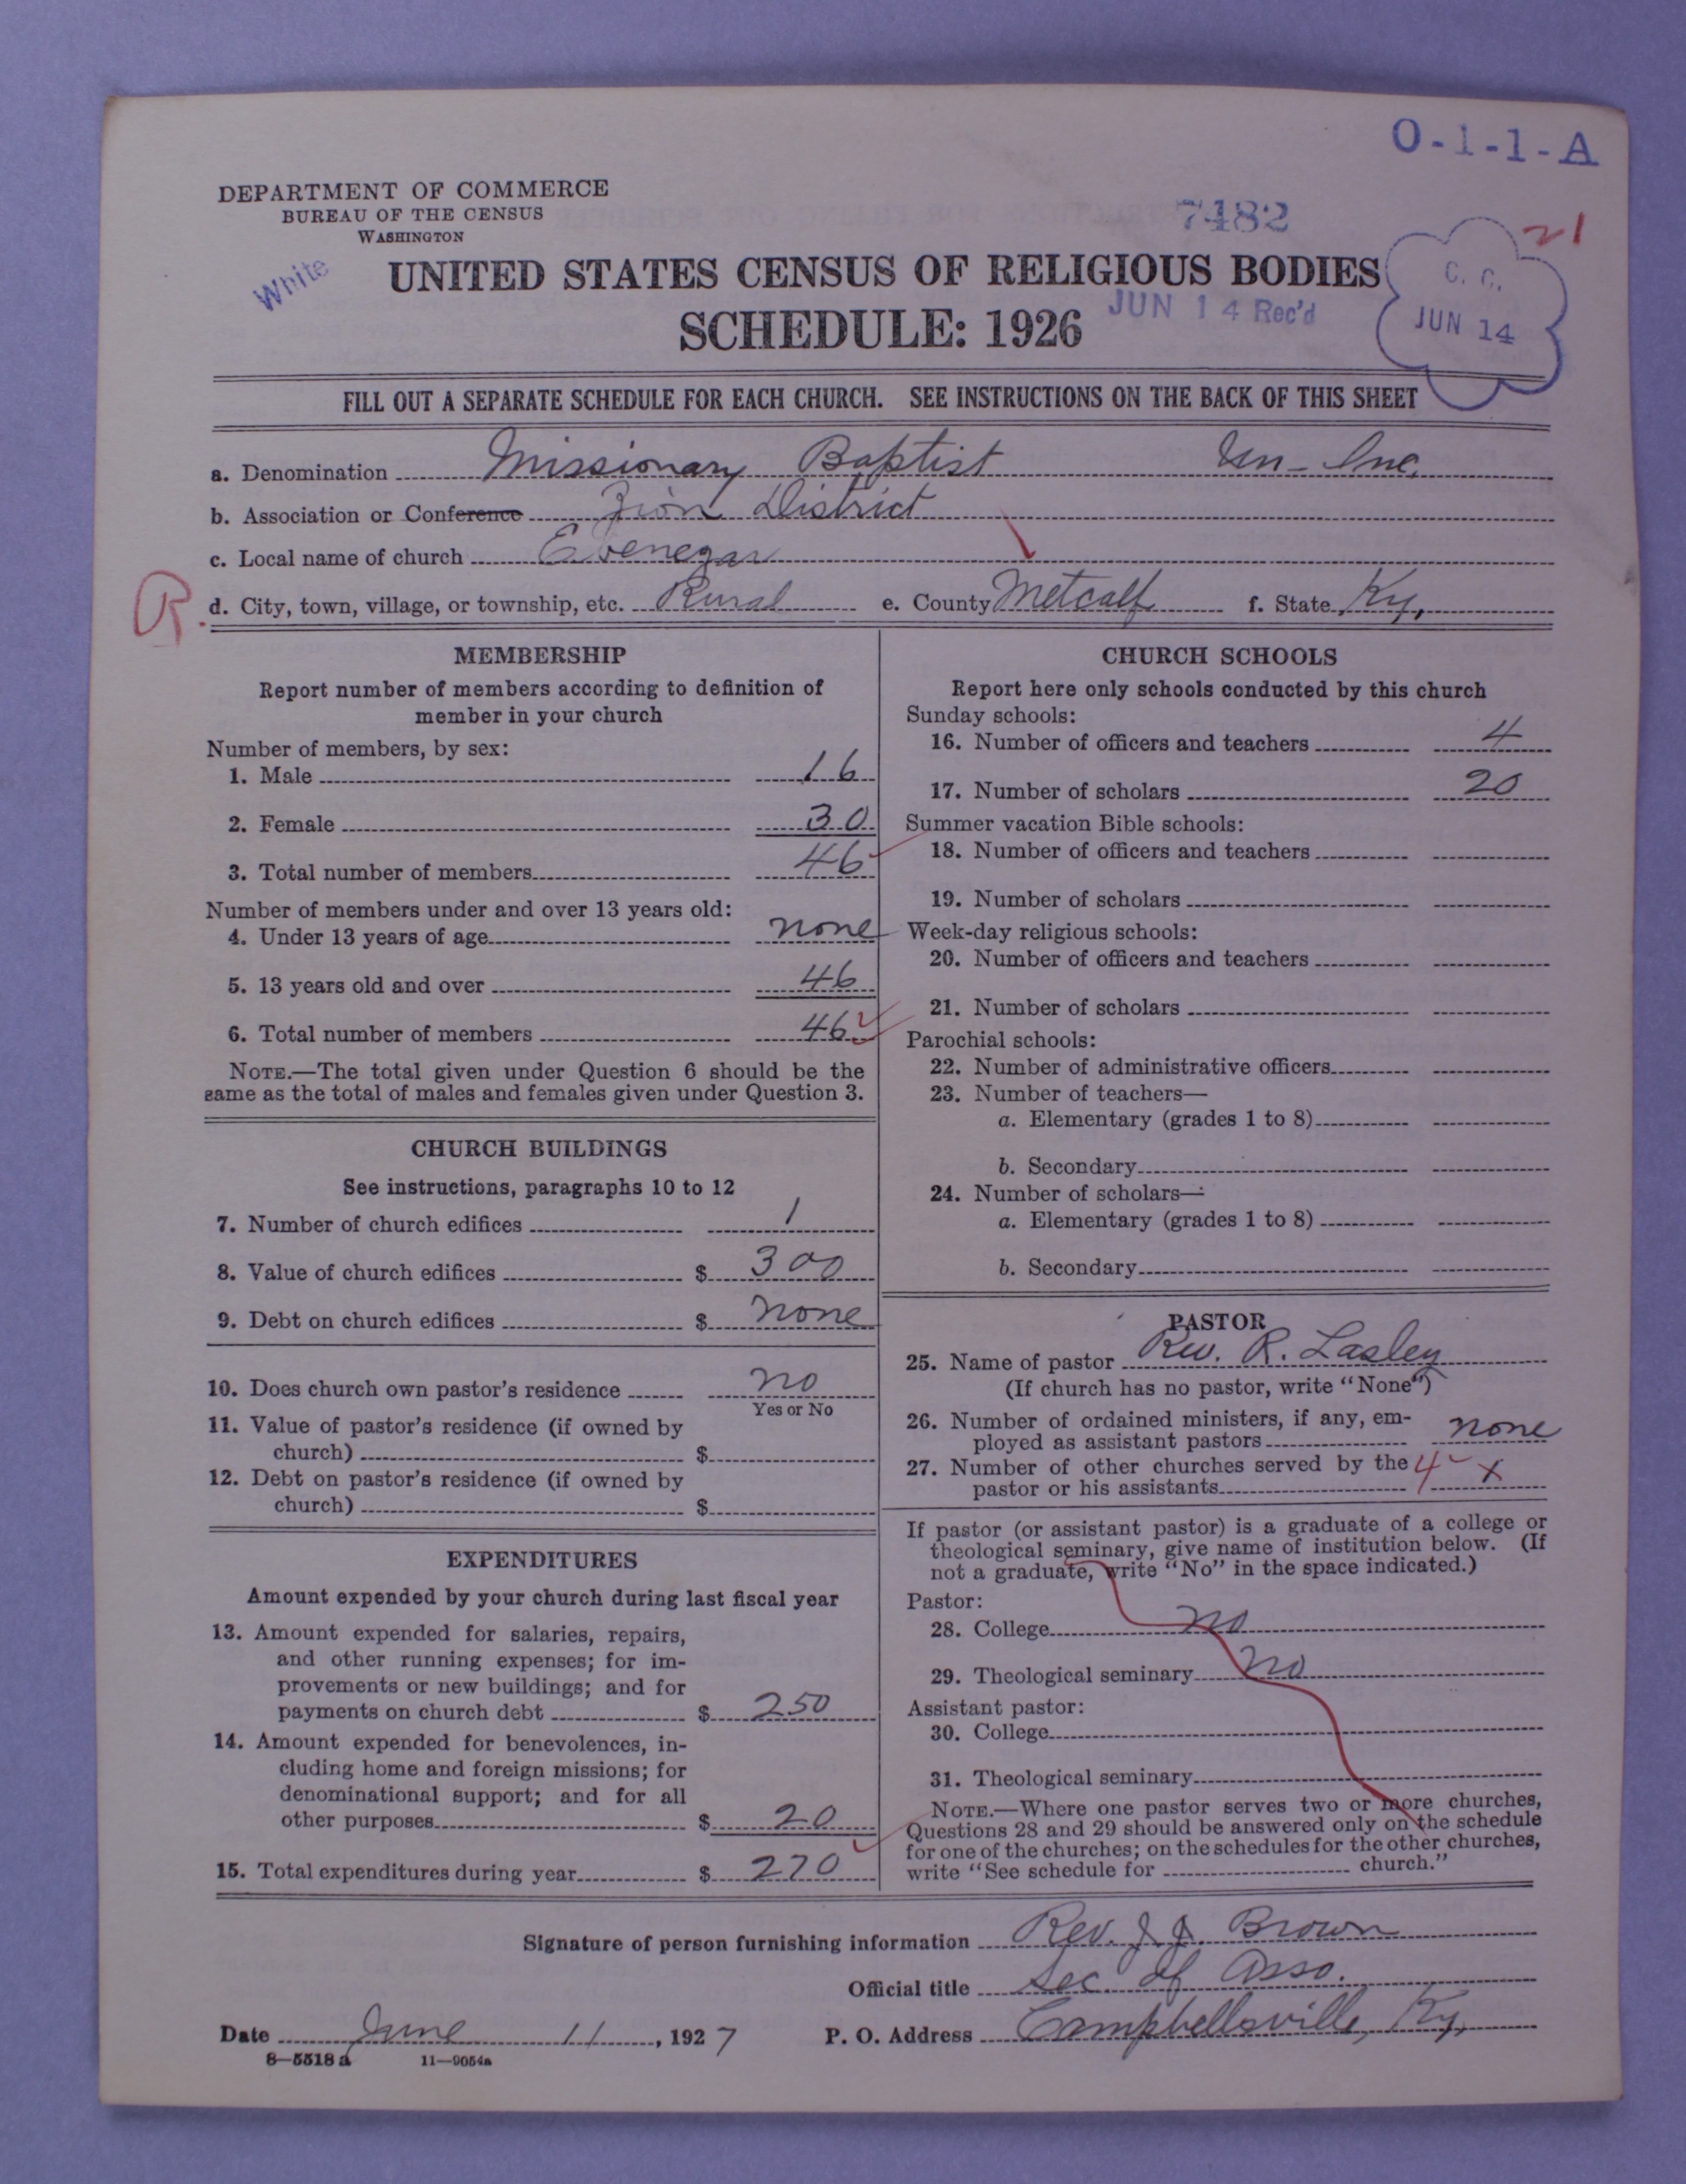 O-1-1-A
DEPARTMENT OF COMMERCE
BUREAU OF THE CENSUS
WASHINGTON
7482
21
White
UNITED STATES CENSUS OF RELIGIOUS BODIES
SCHEDULE: 1926
JUN 14 Rec'd
C. C.
JUN 14
FILL OUT A SEPARATE SCHEDULE FOR EACH CHURCH. SEE INSTRUCTIONS ON THE BACK OF THIS SHEET
a. Denomination Missionary Baptist Un-Inc.
b. Association or Conference Zion District
c. Local name of church Ebenezar
R. d. City, town, village, or township, etc. Rural e. County Metcalf f. State Ky,
MEMBERSHIP
Report number of members according to definition of
member in your church
Number of members, by sex:
1. Male 16
2. Female 30
3. Total number of members 46
Number of members under and over 13 years old:
4. Under 13 years of age none
5. 13 years old and over 46
6. Total number of members 46
NOTE.—The total given under Question 6 should be the
same as the total of males and females given under Question 3.
CHURCH BUILDINGS
See instructions, paragraphs 10 to 12
7. Number of church edifices 1
8. Value of church edifices $ 300
9. Debt on church edifices $ none
10. Does church own pastor's residence no
Yes or No
11. Value of pastor's residence (if owned by
church) $
12. Debt on pastor's residence (if owned by
church) $
EXPENDITURES
Amount expended by your church during last fiscal year
13. Amount expended for salaries, repairs,
and other running expenses; for im-
provements or new buildings; and for
payments on church debt $ 250
14. Amount expended for benevolences, in-
cluding home and foreign missions; for
denominational support; and for all
other purposes $ 20
15. Total expenditures during year $ 270
CHURCH SCHOOLS
Report here only schools conducted by this church
Sunday schools:
16. Number of officers and teachers 4
17. Number of scholars 20
Summer vacation Bible schools:
18. Number of officers and teachers
19. Number of scholars
Week-day religious schools:
20. Number of officers and teachers
21. Number of scholars
Parochial schools:
22. Number of administrative officers
23. Number of teachers—
a. Elementary (grades 1 to 8)
b. Secondary
24. Number of scholars—
a. Elementary (grades 1 to 8)
b. Secondary
PASTOR
25. Name of pastor Rev. R. Lasley
(If church has no pastor, write "None")
26. Number of ordained ministers, if any, em-
ployed as assistant pastors none
27. Number of other churches served by the
pastor or his assistants 4 x
If pastor (or assistant pastor) is a graduate of a college or
theological seminary, give name of institution below. (If
not a graduate, write "No" in the space indicated.)
Pastor:
28. College no
29. Theological seminary no
Assistant pastor:
30. College
31. Theological seminary
NOTE.—Where one pastor serves two or more churches,
Questions 28 and 29 should be answered only on the schedule
for one of the churches; on the schedules for the other churches,
write "See schedule for church."
Signature of person furnishing information Rev. J. J. Brown
Official title Sec. of Asso.
Date June 11, 1927 P. O. Address Campbellsville, Ky,
8—5518 a 11—9054a